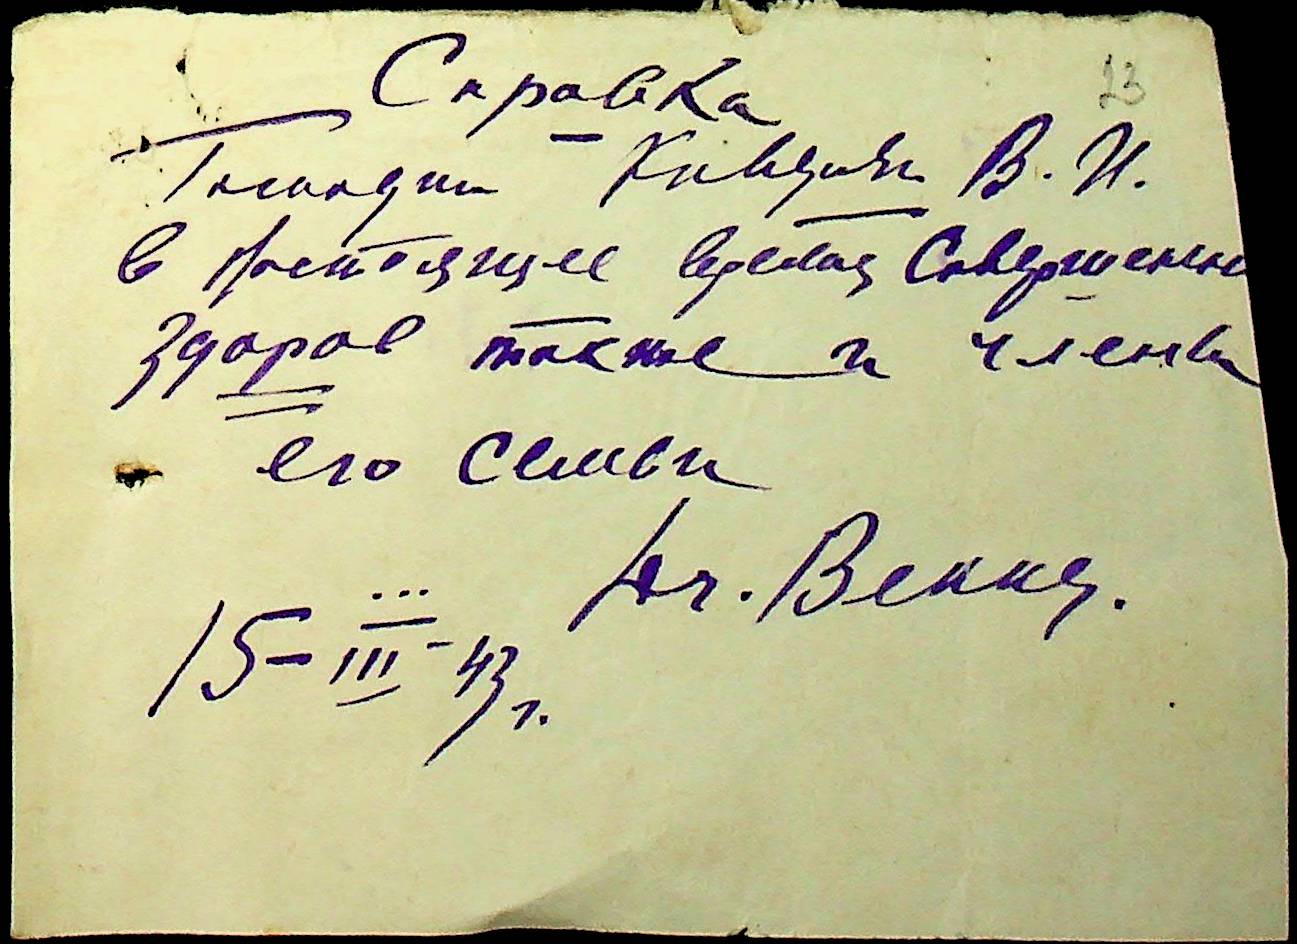 Справка
23
Господин В. И.
в настоящее время Совершенно
здоров также и члены
его семьи
Вр.
15-III-43 г.